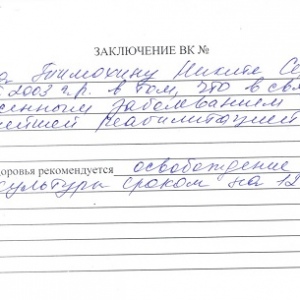 ЗАКЛЮЧЕНИЕ ВК №
Тимохину Никите Се
2003 г.р. в том, что в свя
енным заболеванием
нейшей реабилитацией
доровья рекомендуется освобождение
культуры сроком на 12